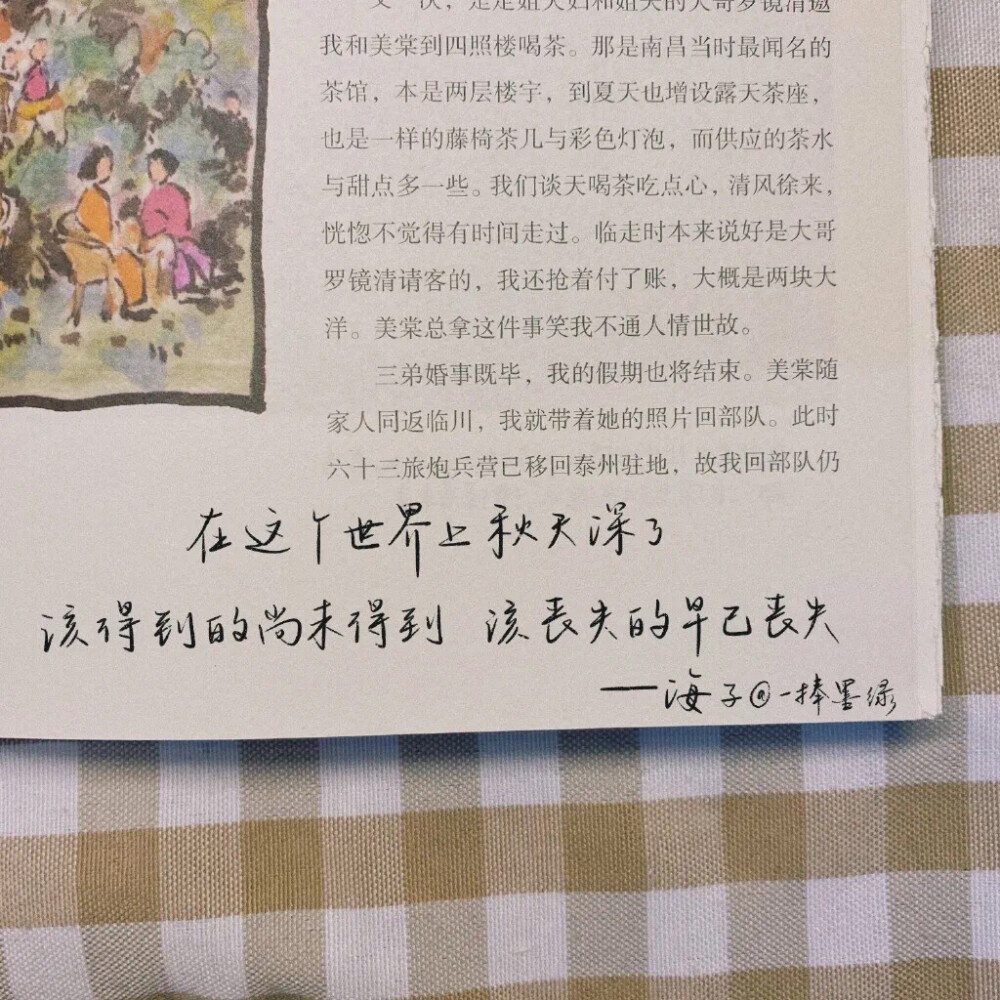 又一次，是定姐夫妇和姐夫的大哥罗镜清邀
我和美棠到四照楼喝茶。那是南昌当时最闻名的
茶馆，本是两层楼宇，到夏天也增设露天茶座，
也是一样的藤椅茶几与彩色灯泡，而供应的茶水
与甜点多一些。我们谈天喝茶吃点心，清风徐来，
恍惚不觉得有时间走过。临走时本来说好是大哥
罗镜清请客的，我还抢着付了账，大概是两块大
洋。美棠总拿这件事笑我不通人情世故。
三弟婚事既毕，我的假期也将结束。美棠随
家人同返临川，我就带着她的照片回部队。此时
六十三旅炮兵营已移回泰州驻地，故我回部队仍
在这个世界上秋天深了
该得到的尚未得到 该丧失的早已丧失
——海子@一捧墨绿